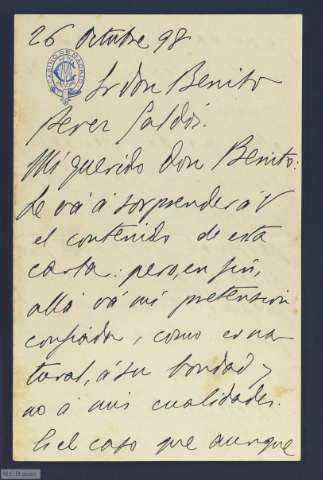 26 Octubre 98
Sr don Benito
Perez Galdós.
Mi querido Don Benito:
Le vá á sorprender á V
el contenido de esta
carta: pero, en fin,
allá vá mi pretension
confiada, como es na-
tural, á su bondad y
no á mis cualidades.
Es el caso que aunque